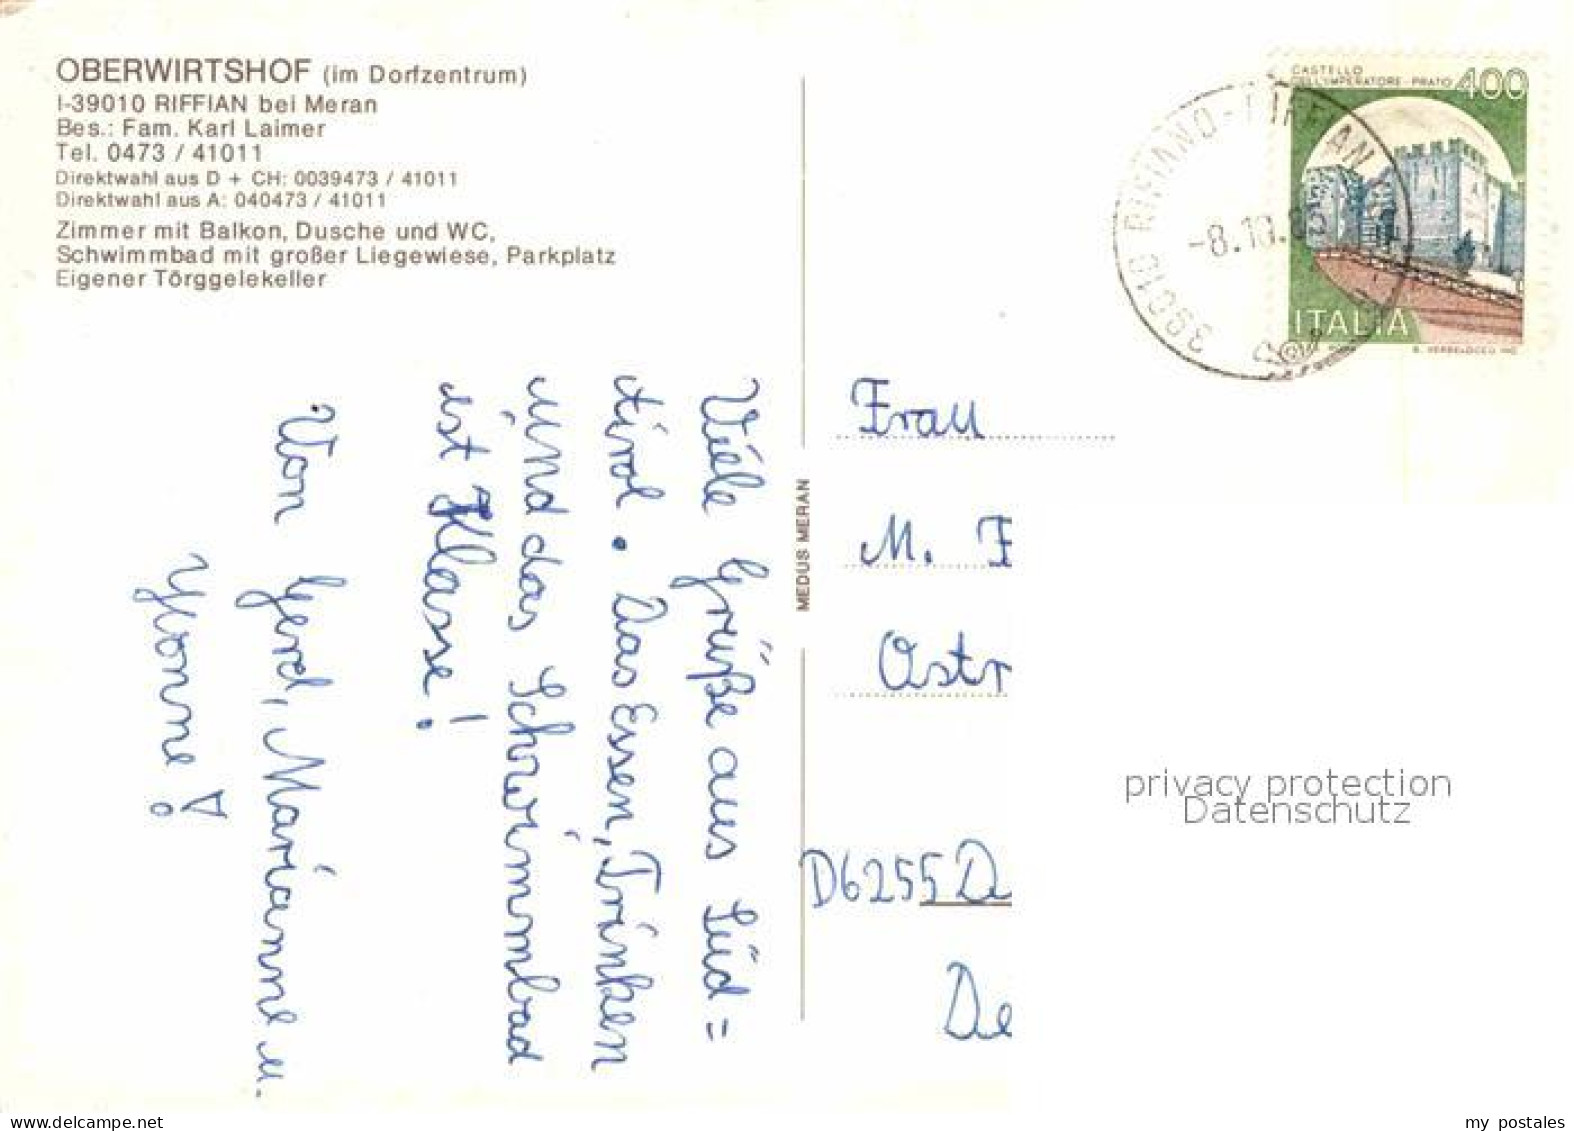 OBERWIRTSHOF (im Dorfzentrum)
I-39010 RIFFIAN bei Meran
Bes.: Fam. Karl Laimer
Tel. 0473 / 41011
Direktwahl aus D + CH: 0039473 / 41011
Direktwahl aus A: 040473 / 41011
Zimmer mit Balkon, Dusche und WC,
Schwimmbad mit großer Liegewiese, Parkplatz
Eigener Törggelekeller
Viele Grüße aus Süd=
tirol. Das Essen, Trinken
und das Schwimmbad
ist Klasse!
Von Gerd, Marianne u.
Yvonne!
MEDUS MERAN
CASTELLO
DELL'IMPERATORE-PRATO 400
ITALIA
39010
-8.10.
Frau
M. F
Ostr
D6255 D
De
privacy protection
Datenschutz
my postales